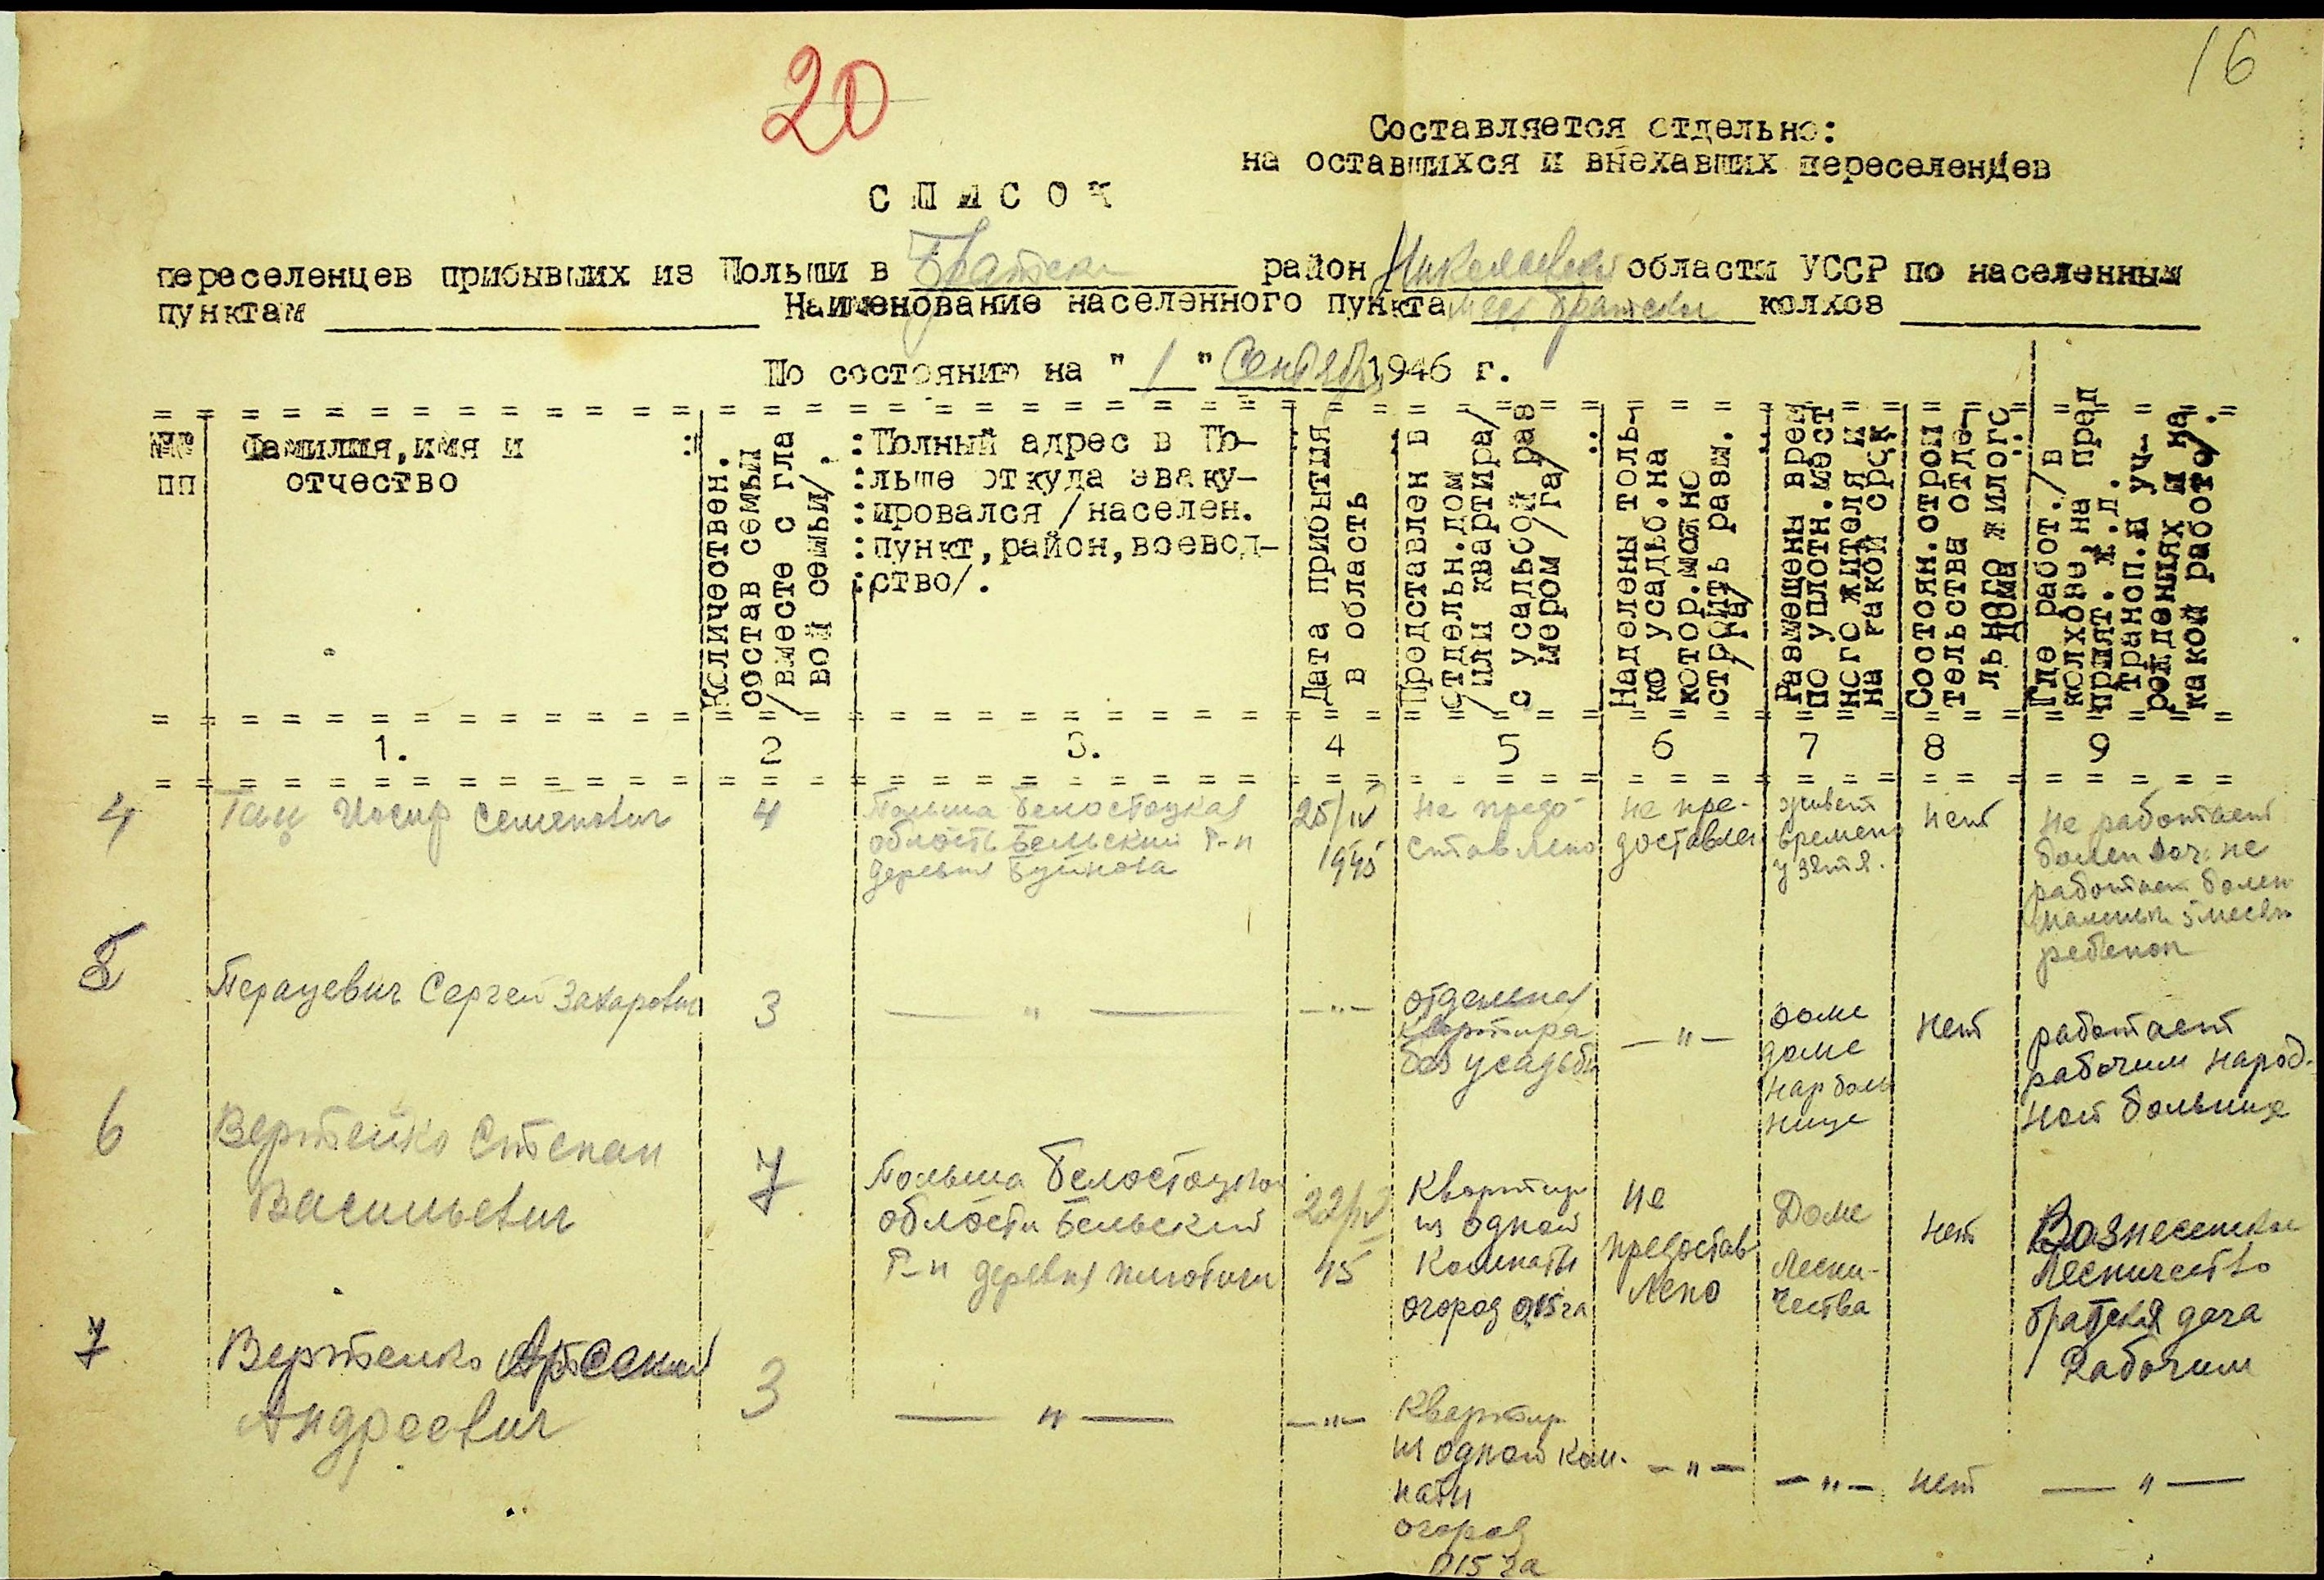 16
20
Составляется отдельно:
на оставшихся и внехавших переселенцев
С П И С О К
переселенцев прибывших из Польши в Братски район Николаевской области УССР по населенным
пунктам Наименование населенного пункта Братски колхоз
По состоянию на "1" Сентября 1946 г.
№№ пп
Фамилия, имя и
отчество
Количествен.
состав семьи
/вместе с гла
вой семьи/.
Полный адрес в По-
льше откуда эваку-
ировался /населен.
пункт, район, воевод-
ство/.
Дата прибытия
в область
Представлен в
отдельн.дом
/или квартира/
с усальбой раз
мером /га/
Наделены толь-
ко усадьб.на
котор.можно
строить разм.
/га/
Размещены врем
по уплотн.мест
ного жителя и
на какой срок
Состоян.строи
тельства отде-
льного жилого
дома
Где работ./в
колхозе, на пред
прият. ж.д.
трансп.и уч-
рождениях и на
какой работе/.
1. 2 3. 4 5 6 7 8 9
4 Гац Иосиф Семенович 4
Польша Белостоцкая
область Бельский Р-н
деревня
25/IV
1945
не предо-
ставлено
не пре-
доставлен
живет
времено
у зятя.
нет
не работает
болен доч. не
работает болен
5 месяч
ребенок
5 Перацевич Сергей Захарович 3 — " — — " —
отдельная
квартира
без усадьбы
— " —
доме
нар боль
нице
нет
работает
рабочим народ-
ной больнице
6 Вертейко Степан
Васильевич
7
Польша Белостоцкой
области Бельский
Р-н деревня
22/IV
45
Квартир
из одной
комнаты
огород 0,15 га
не
предостав
лено
Доме
Лесни-
чества
нет
Вознесенское
лесничество
братская дача
Рабочим
7 Вертейко Арсений
Андреевич
3 — " — — " —
Квартир
из одной ком-
наты
огород
0,15 га
— " — — " — нет — " —